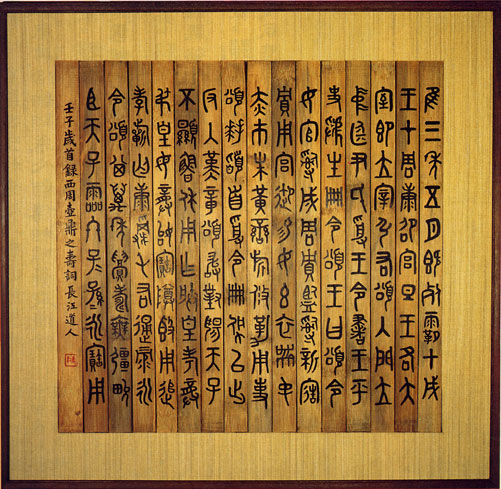 隹三年五月既死霸甲戌
王才周康卲宮旦王各大
室即立宰弘右頌入門立
中廷尹氏受王令書王乎
史虢生冊令頌王曰頌令
女官𤔲成周貯監𤔲新造
貯用宮御易女玄衣黹屯
赤巿朱黃鑾旂攸勒用事
頌拜首受令冊佩以出
反入堇章頌敢對揚天子
不顯魯休用乍朕皇考龏
皇母龏姒寶用追
孝康右通彔永
令頌其萬年眉壽無疆畯
臣天子霝冬子孫永寶用
壬子歲首錄西周壺鼎之壽詞長江道人